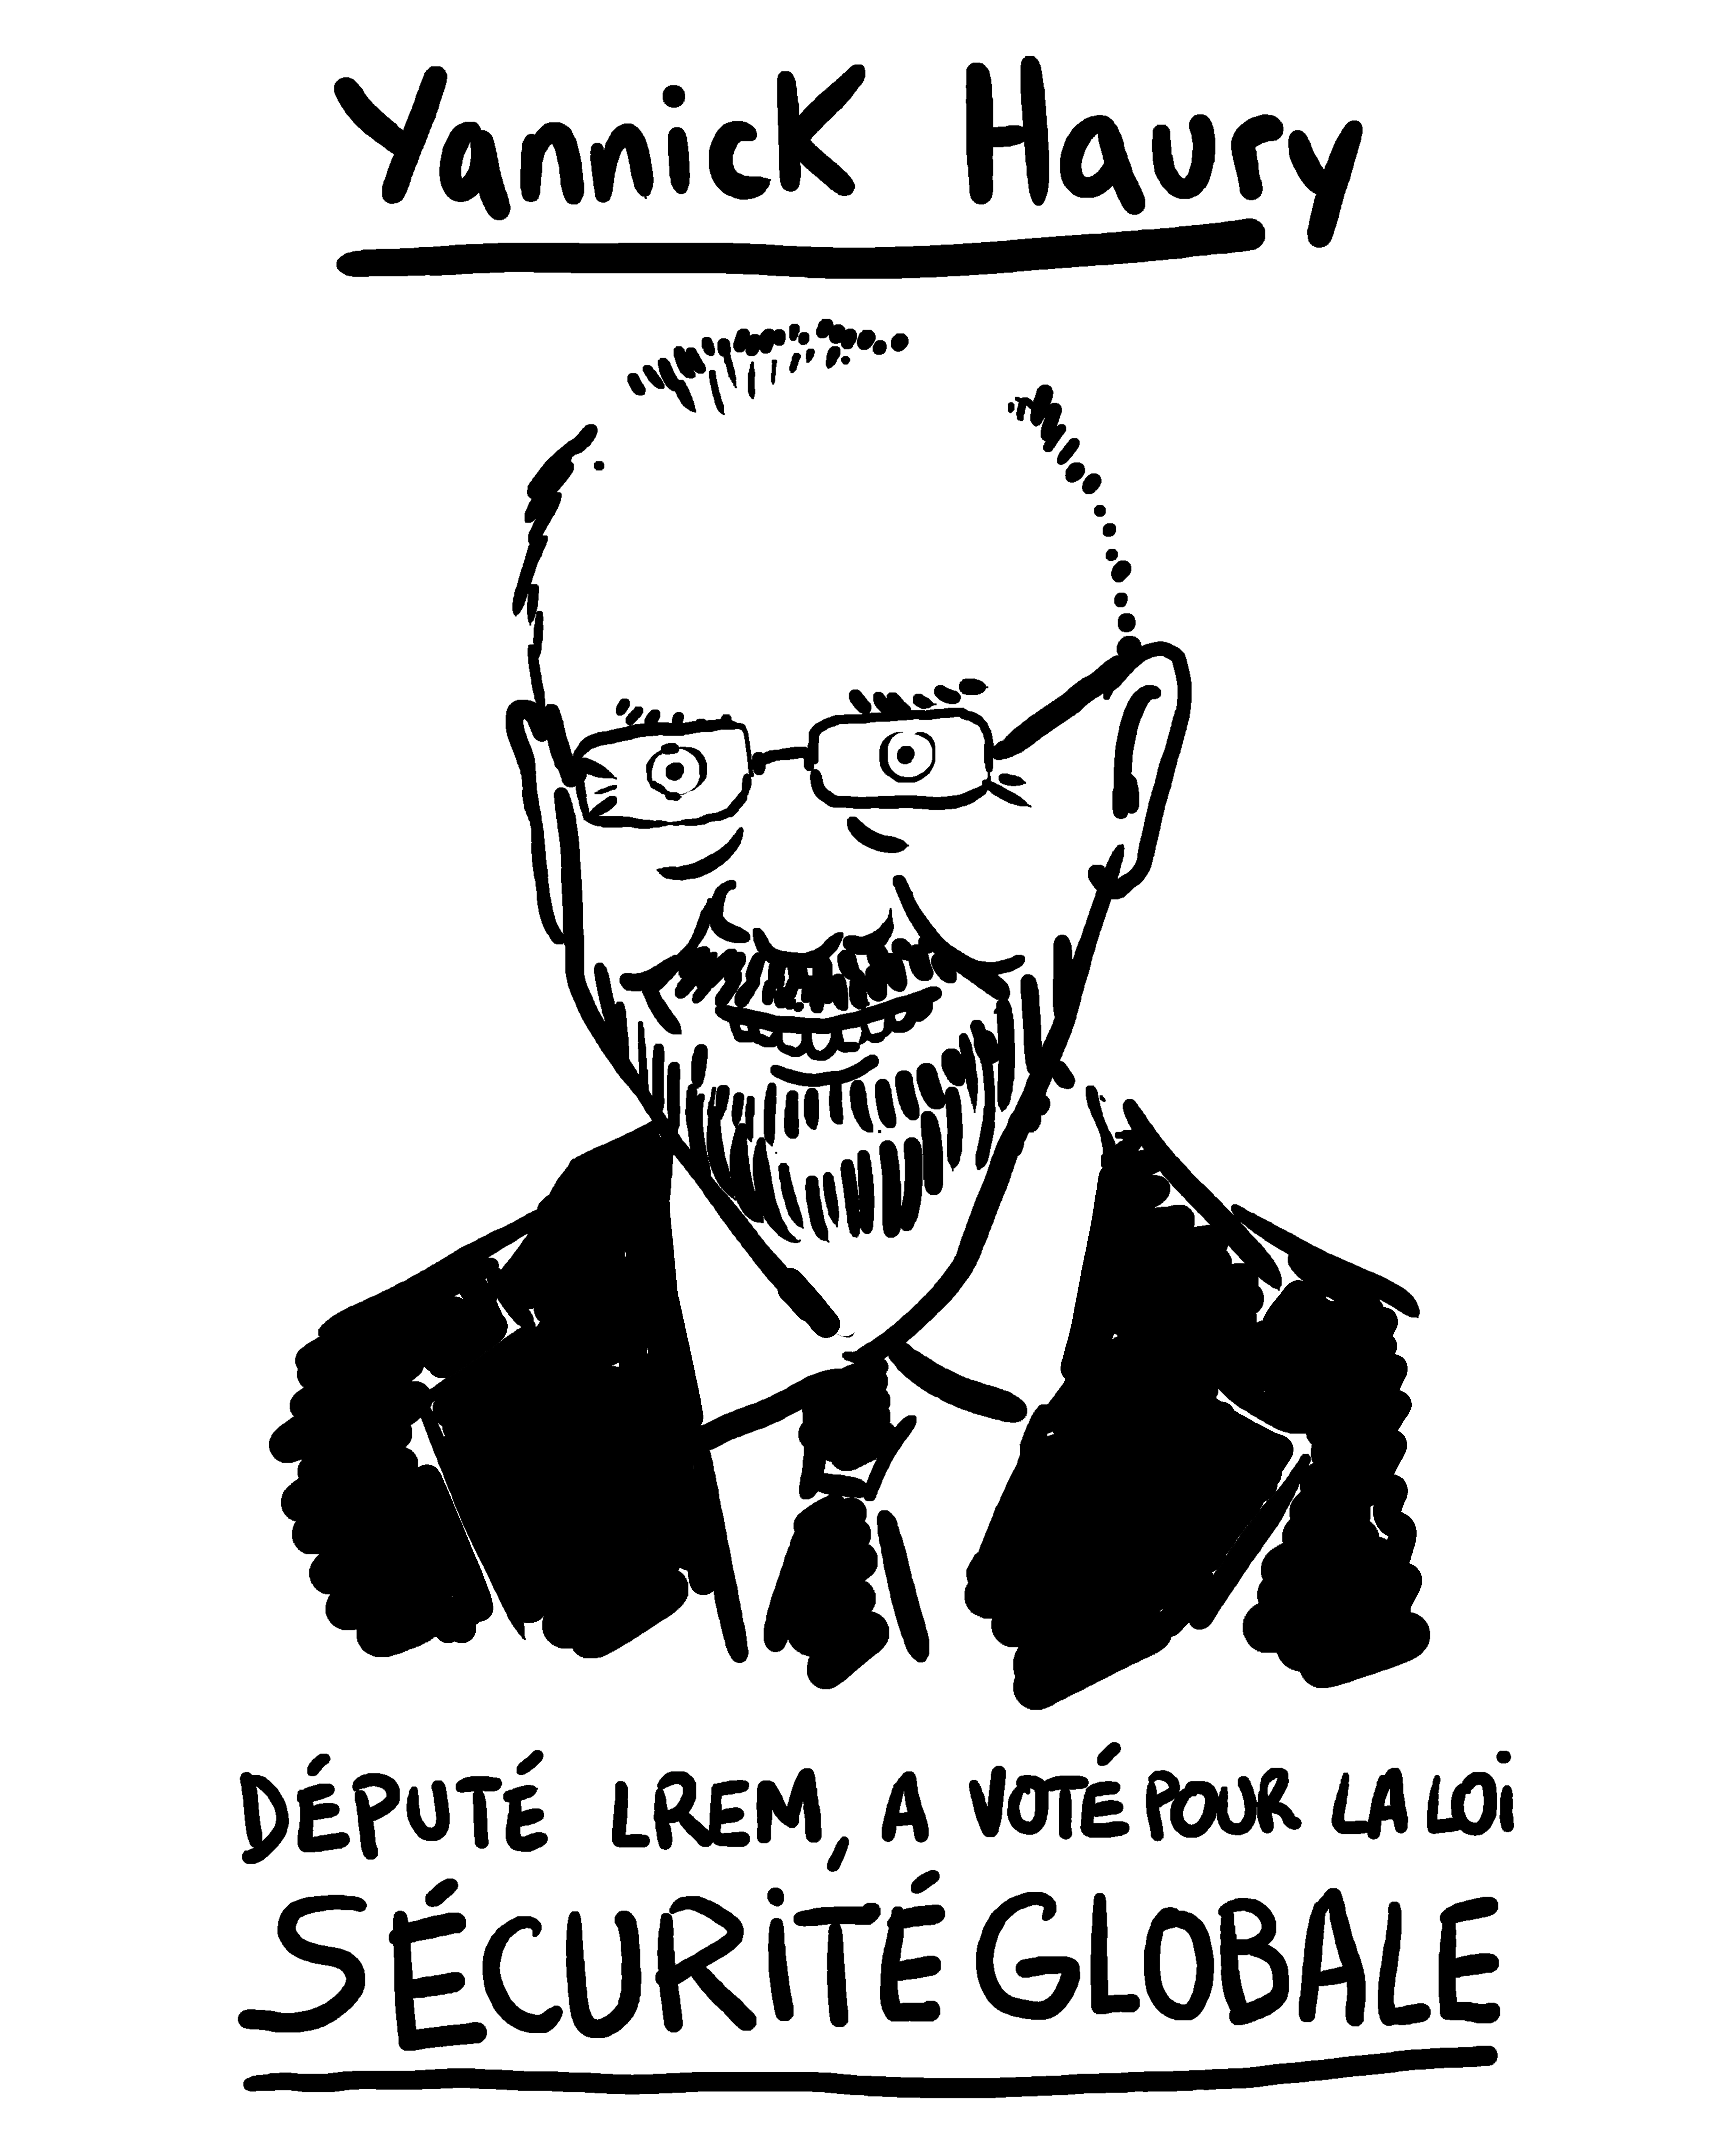 Yannick Haury
DÉPUTÉ LREM, A VOTÉ POUR LA LOi
SÉCURiTÉ GLOBALE